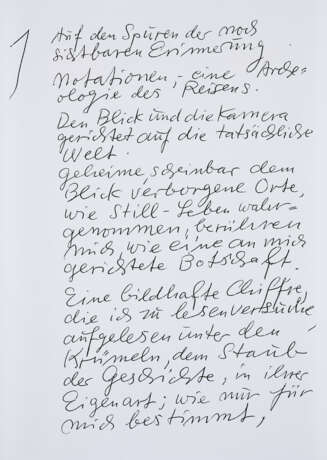 1
Auf den Spuren der noch
sichtbaren Erinnerung
Notationen, - eine Archä=
ologie des Reisens.
Den Blick und die Kamera
gerichtet auf die tatsächliche
Welt.
geheime, scheinbar dem
Blick verborgene Orte,
wie Still-Leben wahr=
genommen, berühren
mich, wie eine an mich
gerichtete Botschaft.
Eine bildhafte Chiffre,
die ich zu lesen versuche,
aufgelesen unter den
Krümeln, dem Staub
der Geschichte, in ihrer
Eigenart; wie nur für
mich bestimmt,